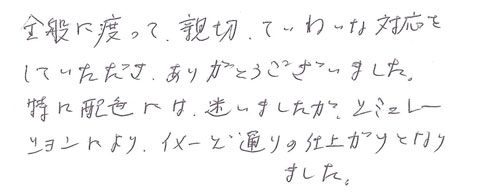 全般に渡って、親切、ていねいな対応を
していただき、ありがとうございました。
特に配色には、迷いましたが、シミュレー
ションにより、イメージ通りの仕上がりとなり
ました。